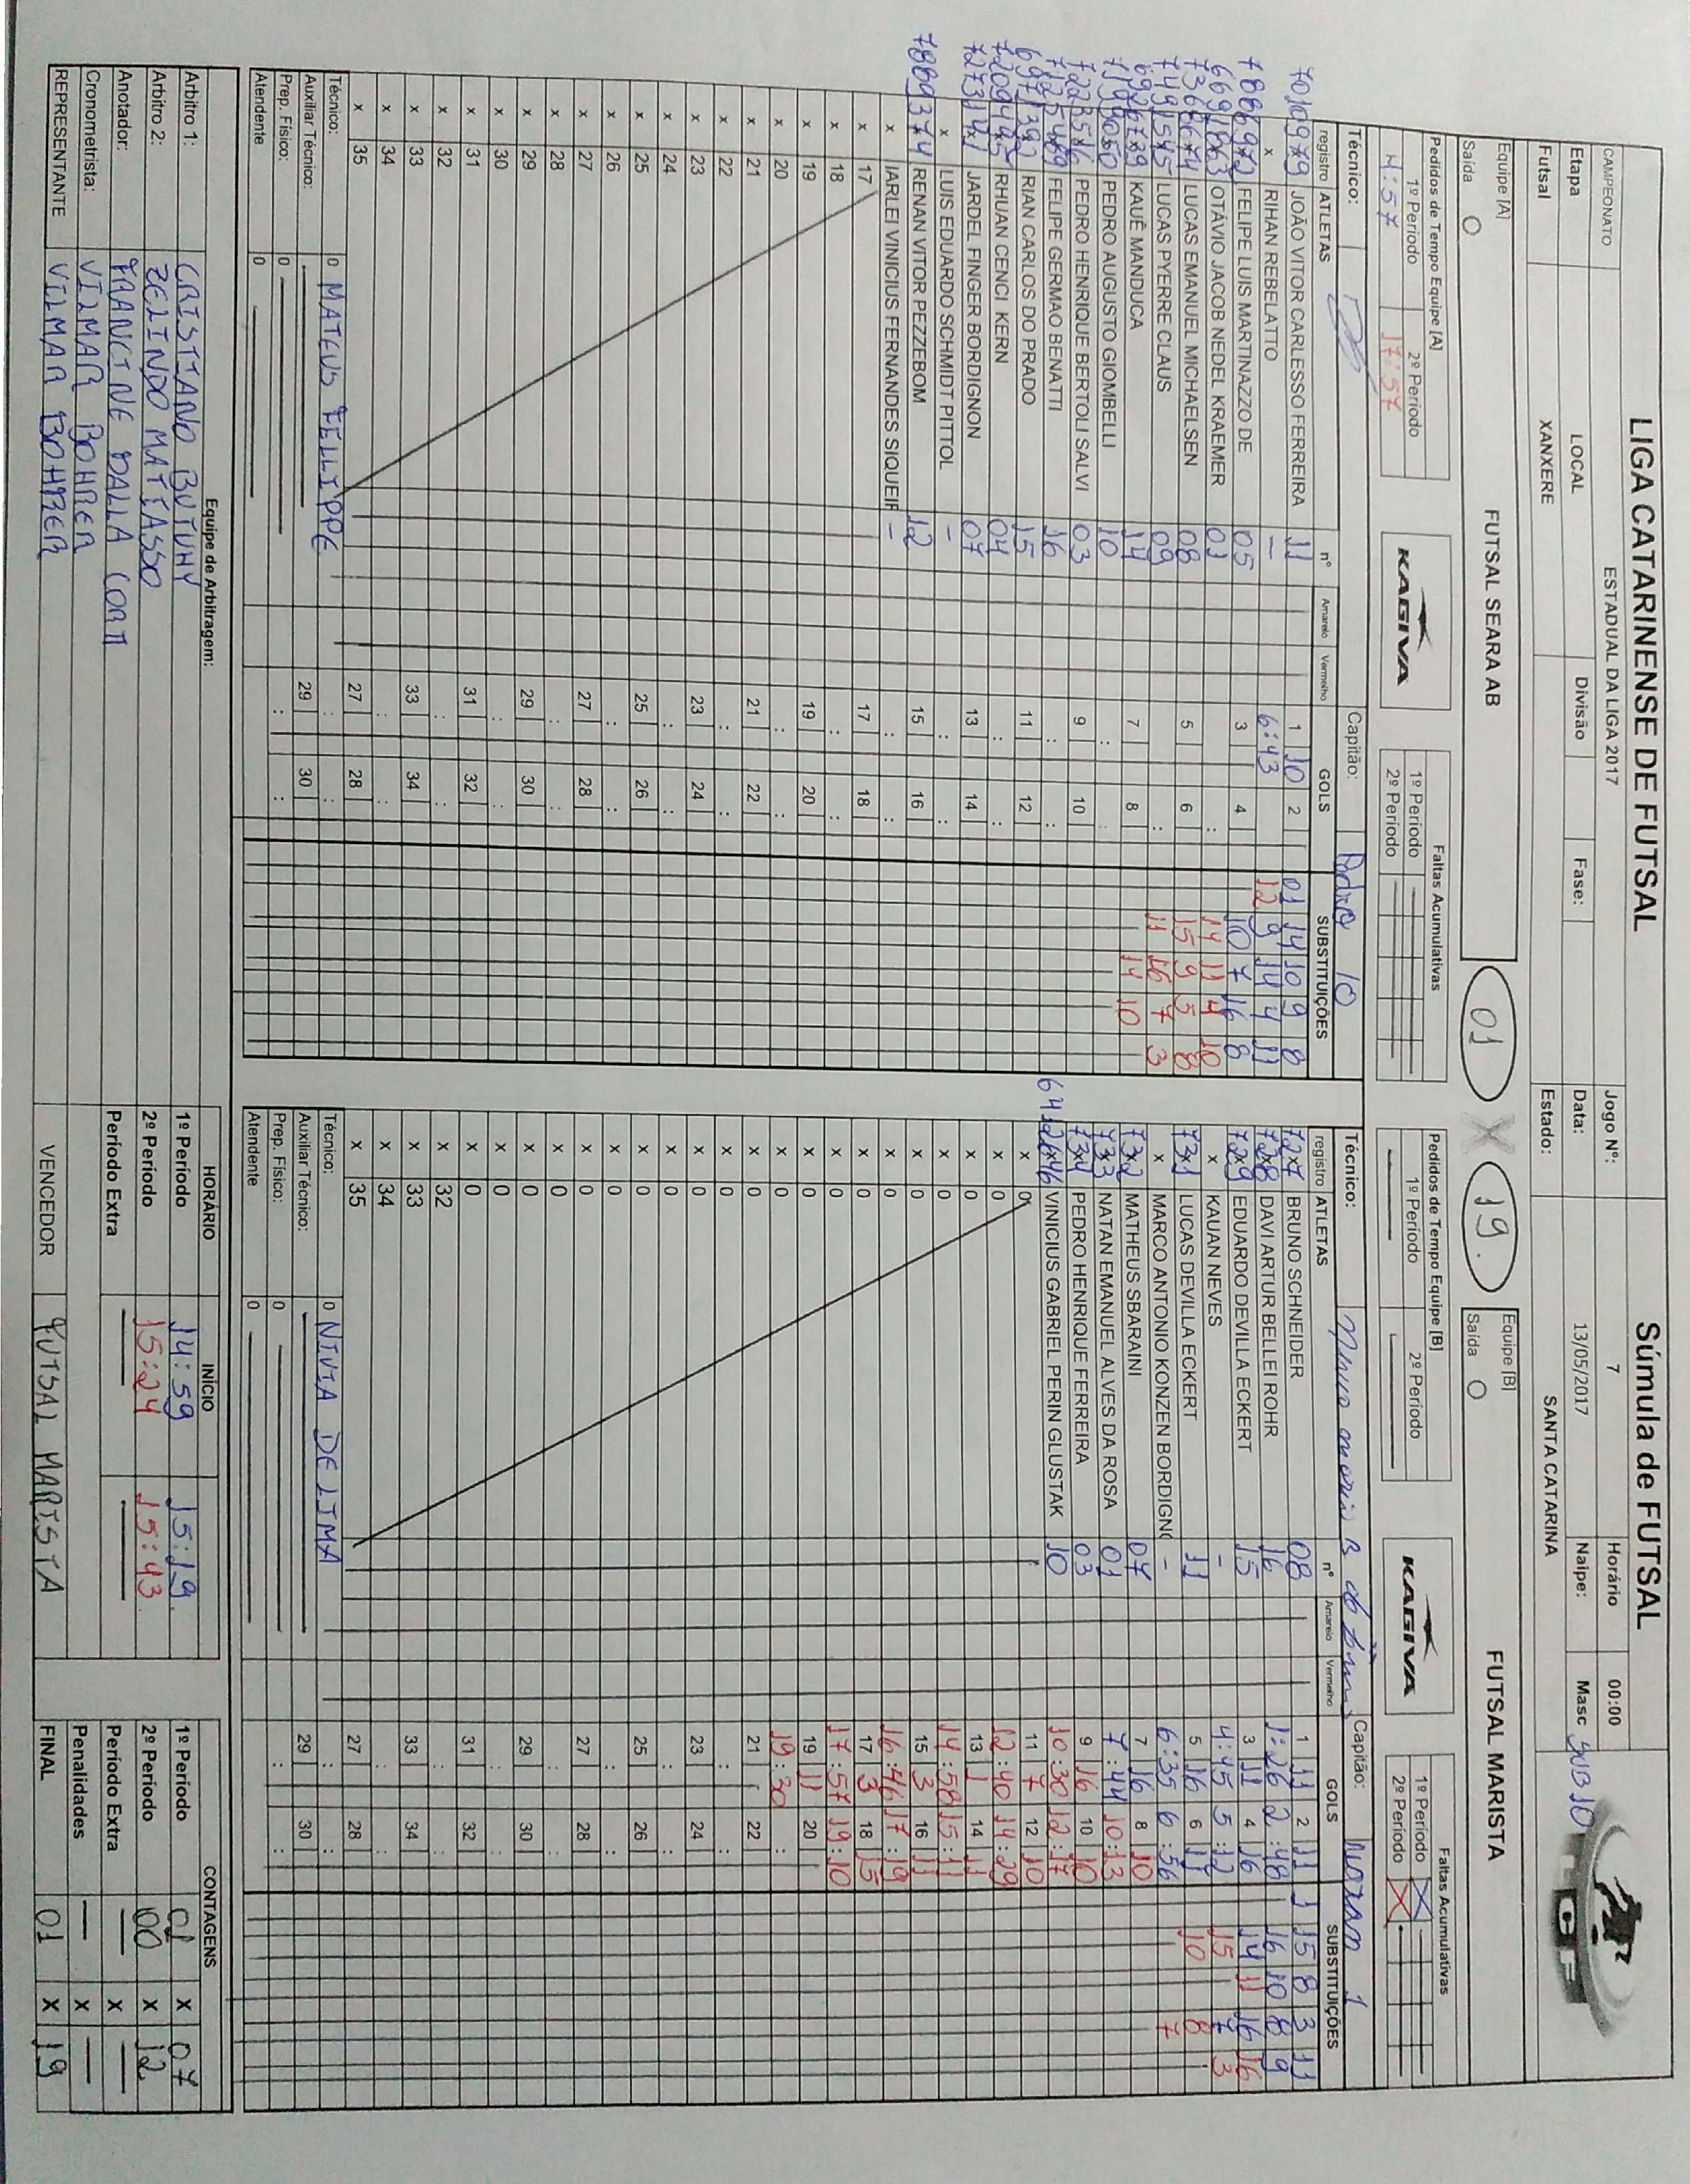 LIGA CATARINENSE DE FUTSAL Súmula de FUTSAL
CAMPEONATO ESTADUAL DA LIGA 2017 Jogo Nº: 7 Horário 00:00
Etapa LOCAL Divisão Fase: Data: 13/05/2017 Naipe: Masc SUB 10
Futsal XANXERE Estado: SANTA CATARINA
Equipe [A] FUTSAL SEARA AB 01 X 19 Equipe [B] FUTSAL MARISTA
Saída Saída
Pedidos de Tempo Equipe [A] KAGIVA Faltas Acumulativas Pedidos de Tempo Equipe [B] KAGIVA Faltas Acumulativas
1º Período 2º Período 1º Período 1º Período 2º Período 1º Período X
17:57 2º Período 2º Período X
Técnico: Capitão: Pedro 10
registro ATLETAS nº Amarelo Vermelho GOLS SUBSTITUIÇÕES
JOÃO VITOR CARLESSO FERREIRA 11 1 10 2 01 14 10 9 8
x RIHAN REBELATTO — 6:43 12 9 14 4 11
FELIPE LUIS MARTINAZZO DE 05 3 4 10 7 16 8
OTÁVIO JACOB NEDEL KRAEMER 01 : 14 11 4 10
LUCAS EMANUEL MICHAELSEN 08 5 6 15 9 5 8
LUCAS PYERRE CLAUS 09 : 11 16 7 3
KAUÊ MANDUCA 14 7 8 14 10
PEDRO AUGUSTO GIOMBELLI 10 : :
PEDRO HENRIQUE BERTOLI SALVI 03 9 10
FELIPE GERMAO BENATTI 16 : :
RIAN CARLOS DO PRADO 15 11 12
RHUAN CENCI KERN 04 : :
JARDEL FINGER BORDIGNON 07 13 14
x LUIS EDUARDO SCHMIDT PITTOL - : :
RENAN VITOR PEZZEBOM 12 15 16
x IARLEI VINICIUS FERNANDES SIQUEIR - : :
x 17 17 18
x 18 : :
x 19 19 20
x 20 : :
x 21 21 22
x 22 : :
x 23 23 24
x 24 : :
x 25 25 26
x 26 : :
x 27 27 28
x 28 : :
x 29 29 30
x 30 : :
x 31 31 32
x 32 : :
x 33 33 34
x 34 : :
x 35 27 28
Técnico: 0 MATEUS FELLIPPE : :
Auxiliar Técnico: 29 30
Prep. Físico: 0 : :
Atendente 0
Técnico: Capitão: Natan 1
registro ATLETAS nº Amarelo Vermelho GOLS SUBSTITUIÇÕES
BRUNO SCHNEIDER 08 1 11 2 11 1 15 8 3 11
DAVI ARTUR BELLEI ROHR 16 1:26 2:48 16 10 8 9
EDUARDO DEVILLA ECKERT 15 3 11 4 16 14 11 16 16
x KAUAN NEVES - 4:45 5:12 15 7 3
LUCAS DEVILLA ECKERT 11 5 16 6 11 10 8
x MARCO ANTONIO KONZEN BORDIGNO - 6:35 6:56 7
MATHEUS SBARAINI 07 7 16 8 10
NATAN EMANUEL ALVES DA ROSA 01 7:44 10:13
PEDRO HENRIQUE FERREIRA 03 9 16 10 10
VINICIUS GABRIEL PERIN GLUSTAK 10 10:30 12:17
x 0 11 7 12 10
x 0 12:40 14:29
x 0 13 1 14 11
x 0 14:58 15:11
x 0 15 3 16 11
x 0 16:46 17:19
x 0 17 3 18 15
x 0 17:57 19:10
x 0 19 11 20
x 0 19:30 :
x 0 21 22
x 0 : :
x 0 23 24
x 0 : :
x 0 25 26
x 0 : :
x 0 27 28
x 0 : :
x 0 29 30
x 0 : :
x 0 31 32
x 32 : :
x 33 33 34
x 34 : :
x 35 27 28
Técnico: 0 NIVIA DE LIMA : :
Auxiliar Técnico: 29 30
Prep. Físico: 0 : :
Atendente 0
Equipe de Arbitragem: HORÁRIO INÍCIO CONTAGENS
Arbitro 1: CRISTIANO 1º Período 14:59 15:19 1º Período 01 X 07
Arbitro 2: ZELINDO MATIASSO 2º Período 15:24 15:43 2º Período 00 X 12
Anotador: FRANCINE DALLA CORT Período Extra — — Período Extra — X —
Cronometrista: VILMAR BOHRER Penalidades — X —
REPRESENTANTE VILMAR BOHRER VENCEDOR FUTSAL MARISTA FINAL 01 X 19